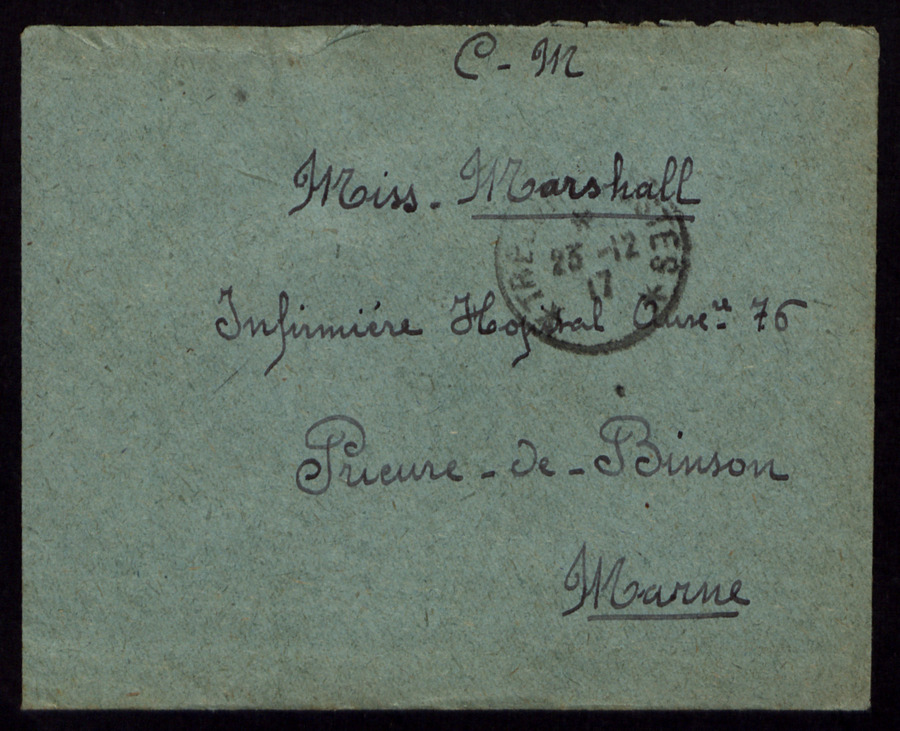 C - M
Miss - Marshall
TRE
23 -12
17
Infirmiére Hopital Auxe re 76
Prieure - de - Binson
Marne